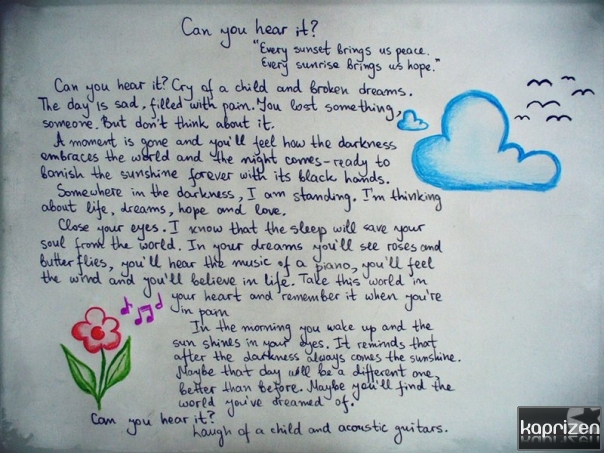 Can you hear it?
"Every sunset brings us peace.
Every sunrise brings us hope."
Can you hear it? Cry of a child and broken dreams.
The day is sad, filled with pain. You lost something,
someone. But don't think about it.
A moment is gone and you'll feel how the darkness
embraces the world and the night comes-ready to
banish the sunshine forever with its black hands.
Somewhere in the darkness, I am standing. I'm thinking
about life, dreams, hope and love.
Close your eyes. I know that the sleep will save your
soul from the world. In your dreams you'll see roses and
butterflies, you'll hear the music of a piano, you'll feel
the wind and you'll believe in life. Take this world in
your heart and remember it when you're
in pain
In the morning you wake up and the
sun shines in your eyes. It reminds that
after the darkness always comes the sunshine.
Maybe that day will be a different one,
better than before. Maybe you'll find the
world you've dreamed of.
Can you hear it?
Laugh of a child and acoustic guitars.
kaprizen